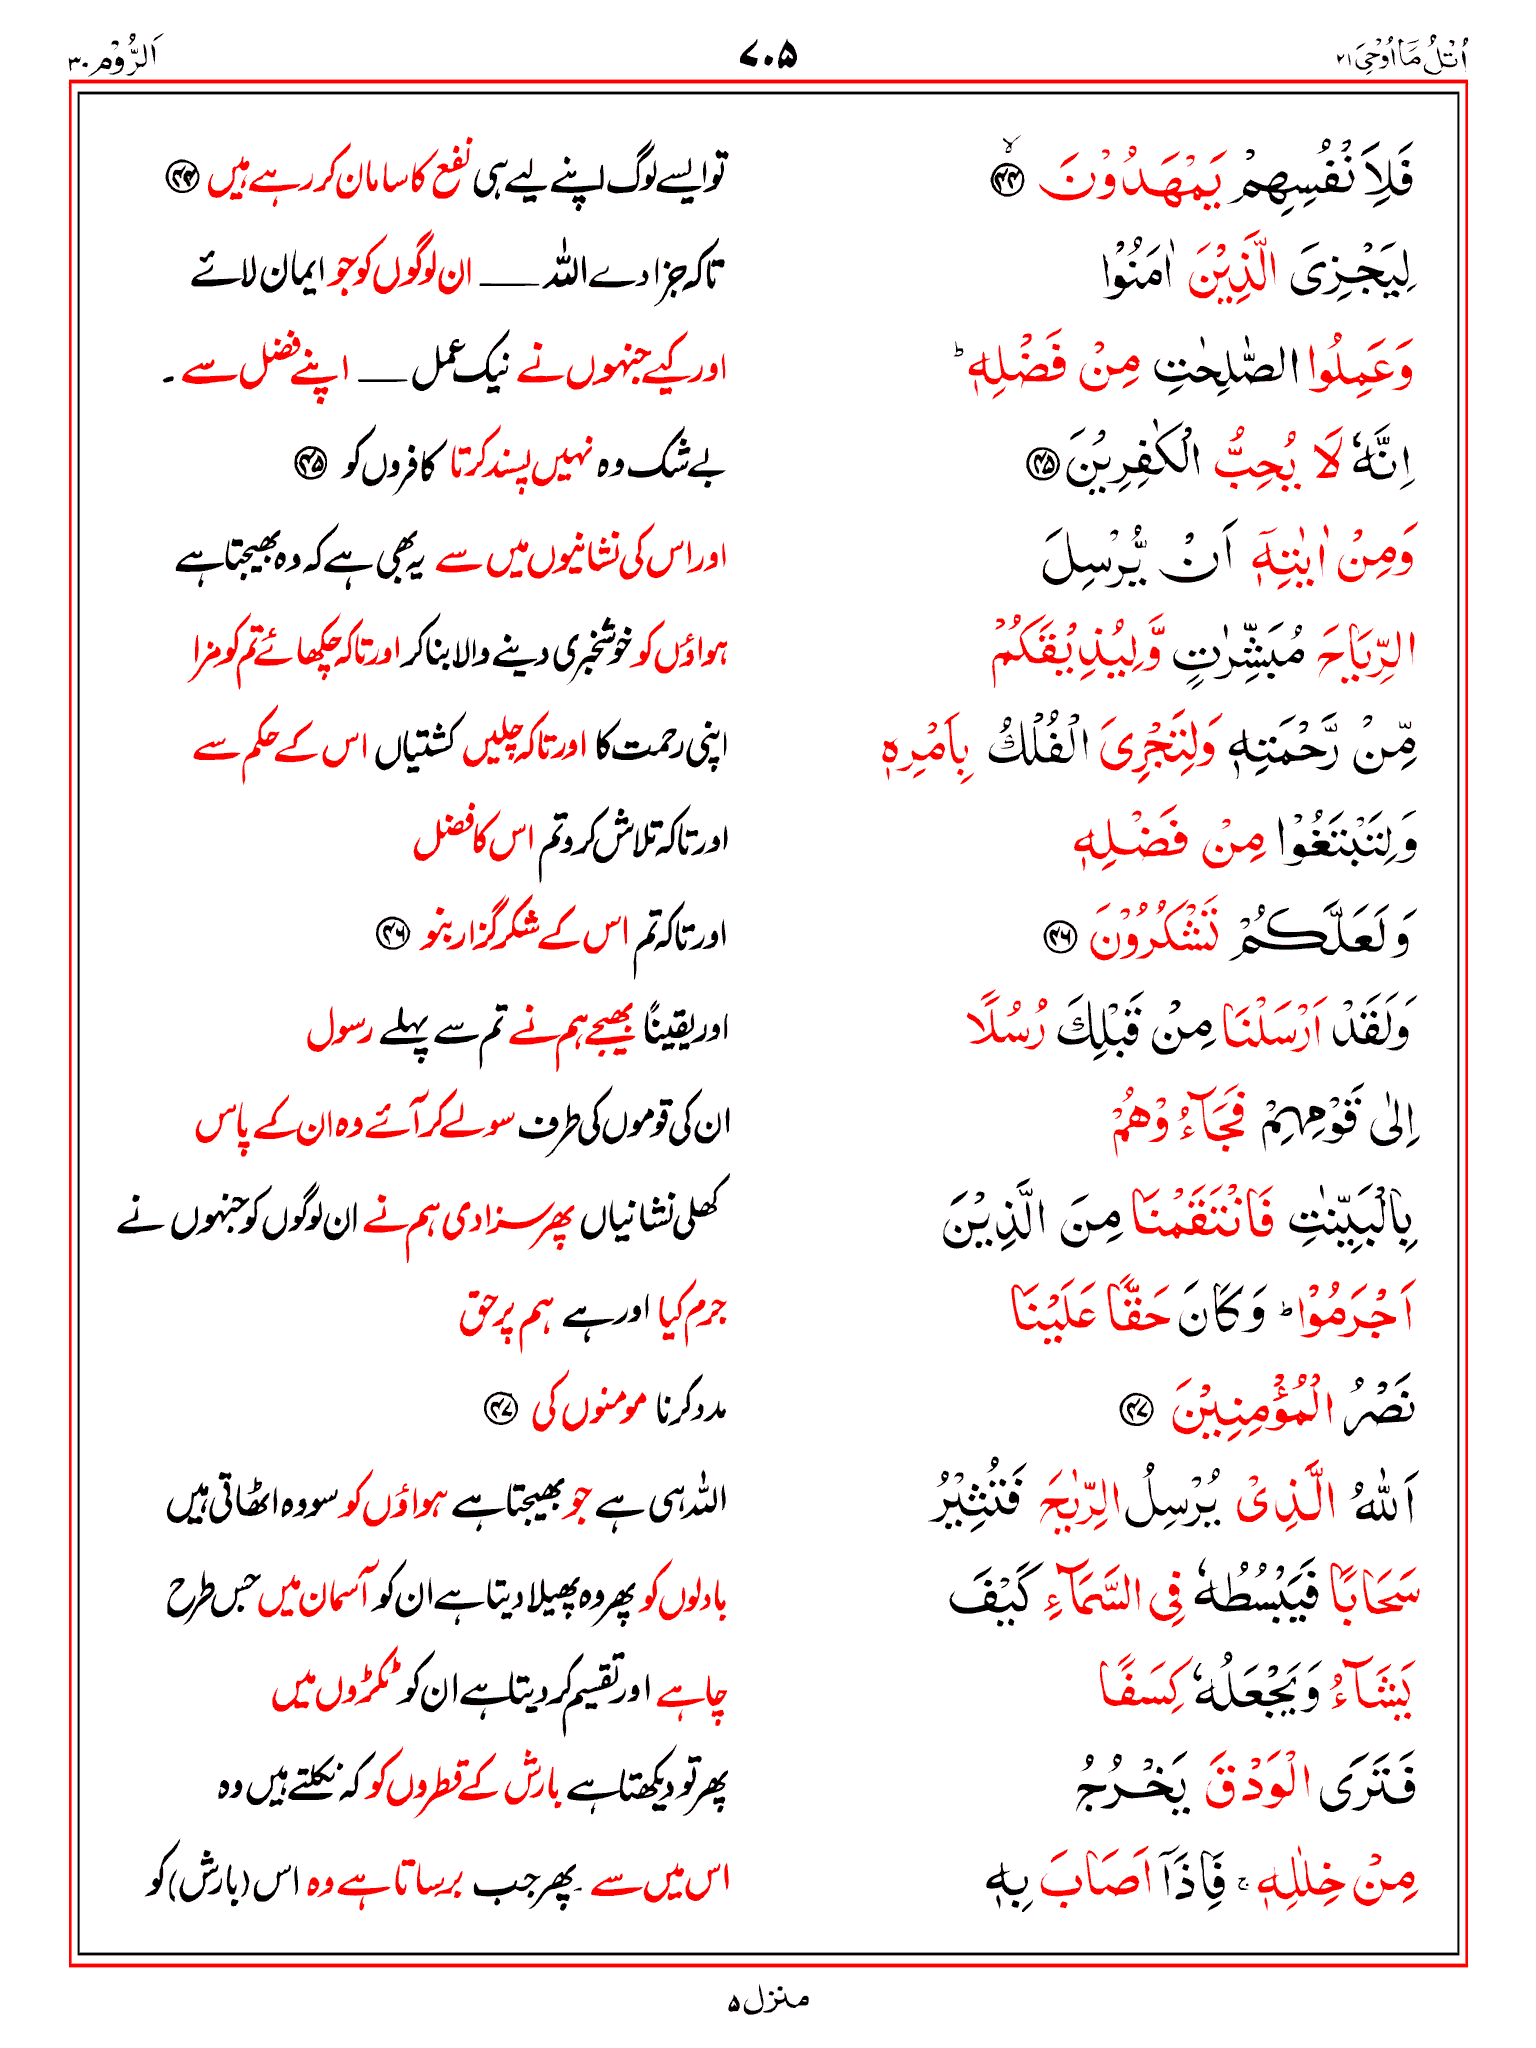 اُتْلُ مَآ اُوْحِیَ ۲۱ ۷۰۵ اَلرُّوْم ۳۰
فَلِاَنْفُسِهِمْ يَمْهَدُوْنَ ۙ‏ ﴿۴۴﴾ تو ایسے لوگ اپنے لیے ہی نفع کا سامان کر رہے ہیں ﴿۴۴﴾
لِيَجْزِىَ الَّذِيْنَ اٰمَنُوْا تاکہ جزا دے اللہ ___ ان لوگوں کو جو ایمان لائے
وَعَمِلُوا الصّٰلِحٰتِ مِنْ فَضْلِهٖ ؕ اور کیے جنہوں نے نیک عمل __ اپنے فضل سے ۔
اِنَّهٗ لَا يُحِبُّ الْكٰفِرِيْنَ ﴿۴۵﴾ بے شک وہ نہیں پسند کرتا کافروں کو ﴿۴۵﴾
وَمِنْ اٰيٰتِهٖۤ اَنْ يُّرْسِلَ اور اس کی نشانیوں میں سے یہ بھی ہے کہ وہ بھیجتا ہے
الرِّيَاحَ مُبَشِّرٰتٍ وَّلِيُذِيْقَكُمْ ہواؤں کو خوشخبری دینے والا بنا کر اور تاکہ چکھائے تم کو مزا
مِّنْ رَّحْمَتِهٖ وَلِتَجْرِىَ الْفُلْكُ بِاَمْرِهٖ اپنی رحمت کا اور تاکہ چلیں کشتیاں اس کے حکم سے
وَلِتَبْتَغُوْا مِنْ فَضْلِهٖ اور تاکہ تلاش کرو تم اس کا فضل
وَلَعَلَّكُمْ تَشْكُرُوْنَ ﴿۴۶﴾ اور تاکہ تم اس کے شکر گزار بنو ﴿۴۶﴾
وَلَقَدْ اَرْسَلْنَا مِنْ قَبْلِكَ رُسُلًا اور یقیناً بھیجے ہم نے تم سے پہلے رسول
اِلٰى قَوْمِهِمْ فَجَآءُوْهُمْ ان کی قوموں کی طرف سو لے کر آئے وہ ان کے پاس
بِالْبَيِّنٰتِ فَانْتَقَمْنَا مِنَ الَّذِيْنَ کھلی نشانیاں پھر سزا دی ہم نے ان لوگوں کو جنہوں نے
اَجْرَمُوْا ؕ وَكَانَ حَقًّا عَلَيْنَا جرم کیا اور ہے ہم پر حق
نَصْرُ الْمُؤْمِنِيْنَ ﴿۴۷﴾ مدد کرنا مومنوں کی ﴿۴۷﴾
اَللّٰهُ الَّذِىْ يُرْسِلُ الرِّيٰحَ فَتُثِيْرُ اللہ ہی ہے جو بھیجتا ہے ہواؤں کو سو وہ اٹھاتی ہیں
سَحَابًا فَيَبْسُطُهٗ فِى السَّمَآءِ كَيْفَ بادلوں کو پھر وہ پھیلا دیتا ہے ان کو آسمان میں جس طرح
يَشَآءُ وَيَجْعَلُهٗ كِسَفًا چاہے اور تقسیم کر دیتا ہے ان کو ٹکڑوں میں
فَتَرَى الْوَدْقَ يَخْرُجُ پھر تو دیکھتا ہے بارش کے قطروں کو کہ نکلتے ہیں وہ
مِنْ خِلٰلِهٖ ۚ فَاِذَاۤ اَصَابَ بِهٖ اس میں سے ۔پھر جب برساتا ہے وہ اس (بارش) کو
منزل ۵